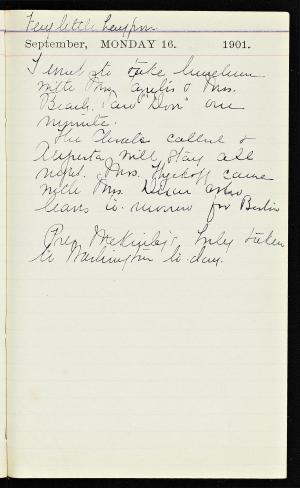 Very little
September, MONDAY 16. 1901.
I went to take luncheon
with Mrs. & Mrs.
Beach. saw "Don" one
minute.
The called &
Augusta will stay all
night. Mrs. Wyckoff came
with Mrs. Dixon who
leaves to-morrow for Berlin
Pres McKinley's body taken
to Washington to-day.